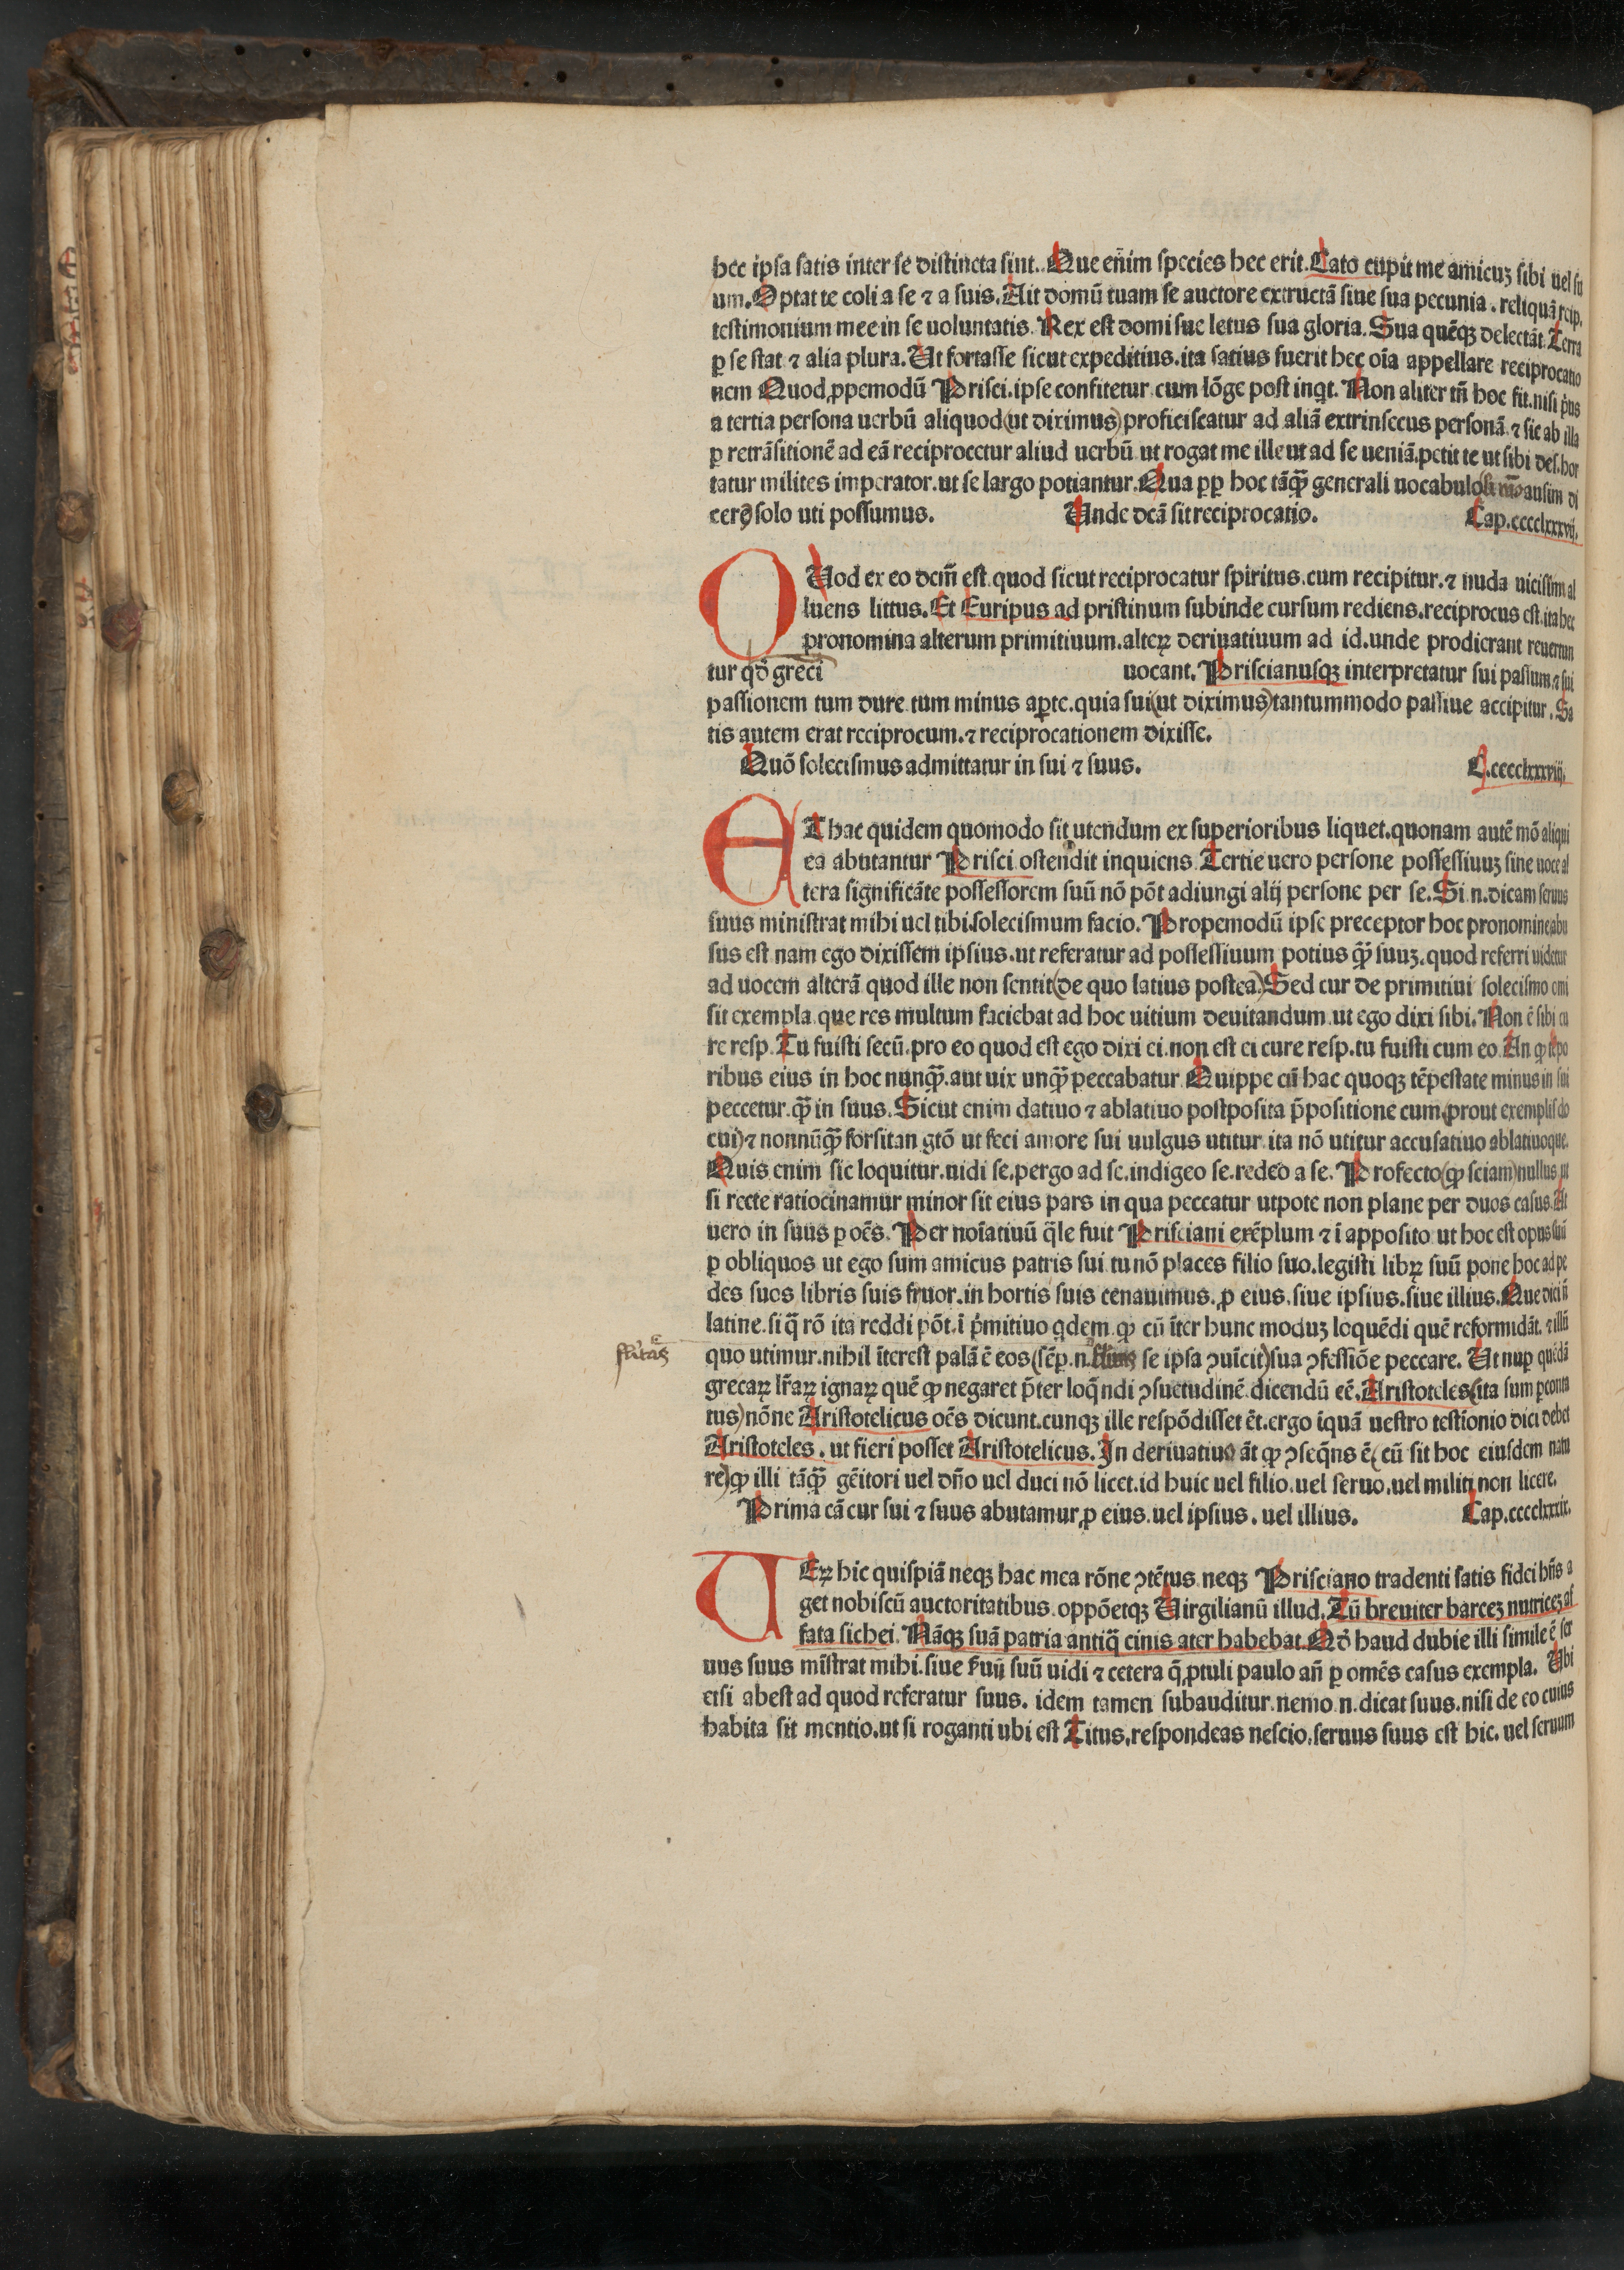 hec ipsa satis inter se distincta sint. Que eñim species hec erit. Cato cupit me amicuꝫ sibi uel su
um. Optat te coli a se ⁊ a suis. Ait domũ tuam se auctore extructã siue sua pecunia. reliquã reip.
testimonium mee in se uoluntatis. Rex est domi sue letus sua gloria. Sua quẽqꝫ delectãt. Terra
ꝑ se stat ⁊ alia plura. Ut fortasse sicut expeditius. ita satius fuerit hec oĩa appellare reciprocatio
nem Quod ꝓpemodũ Prisci. ipse confitetur cum lõge post inqt. Non aliter tñ hoc fit. nisi p̓us
a tertia persona uerbũ aliquod (ut diximus) proficiscatur ad aliã extrinsecus personã. ⁊ sic ab illa
ꝑ retrãsitionẽ ad eã reciprocetur aliud uerbũ ut rogat me ille ut ad se ueniã. petit te ut sibi des. hor
tatur milites imperator. ut se largo potiantur. Qua ꝓp hoc tãꝙ̃ generali uocabulo ausim di
cere solo uti possumus. Unde dcã sit reciprocatio. Cap. cccclxxxvij.
QUod ex eo dcm̃ est quod sicut reciprocatur spiritus. cum recipitur. ⁊ nuda uicissim al
luens littus. Et Euripus ad pristinum subinde cursum rediens. reciprocus est. ita hec
pronomina alterum primitiuum. alteꝝ deriuatiuum ad id. unde prodierant reuertun
tur qđ greci uocant. Priscianusqꝫ interpretatur sui passum ⁊ sui
passionem tum dure tum minus aꝑte. quia sui (ut diximus) tantummodo passiue accipitur. Sa
tis autem erat reciprocum. ⁊ reciprocationem dixisse.
Quõ solecismus admittatur in sui ⁊ suus. C. cccclxxxviij.
AT hac quidem quomodo sit utendum ex superioribus liquet. quonam autẽ mõ aliqui
ea abutantur Prisci ostendit inquiens. Tertie uero persone possessiuuꝫ sine uoce al
tera significãte possessorem suũ nõ põt adiungi alij persone per se. Si. n. dicam seruus
suus ministrat mihi uel tibi. solecismum facio. Propemodũ ipse preceptor hoc pronomine abu
sus est nam ego dixissem ipsius. ut referatur ad possessiuum potius ꝙ̃ suuꝫ. quod referri uidetur
ad uocem alterã quod ille non sentit (de quo latius postea.) Sed cur de primitiui solecismo omi
sit exempla que res multum faciebat ad hoc uitium deuitandum ut ego dixi sibi. Non ẽ sibi cu
re resp. Tu fuisti secũ. pro eo quod est ego dixi ei. non est ei cure resp. tu fuisti cum eo. An ꝙ tẽpo
ribus eius in hoc nunꝙ̃. aut uix unꝙ̃ peccabatur. Quippe cũ hac quoqꝫ tẽpestate minus in sui
peccetur. ꝙ̃ in suus. Sicut enim datiuo ⁊ ablatiuo postposita p̃positione cum (prout exemplis do
cui) ⁊ nonnũꝙ̃ forsitan gtõ ut feci amore sui uulgus utitur. ita nõ utitur accusatiuo ablatiuoque.
Quis enim sic loquitur. uidi se. pergo ad se. indigeo se. redeo a se. Profecto (ꝙ sciam) nullus ut
si recte ratiocinamur minor sit eius pars in qua peccatur utpote non plane per duos casus. At
uero in suus ꝑ oẽs. Per noĩatiuũ q̃le fuit Prisciani exẽplum ⁊ ĩ apposito ut hoc est opus suũ
ꝑ obliquos ut ego sum amicus patris sui. tu nõ places filio suo. legisti libꝝ suũ pone hoc ad pe
des suos libris suis fruor. in hortis suis cenauimus. ꝓ eius. siue ipsius. siue illius. Que dici ñ
latine. si q̃ rõ ita reddi põt. ĩ p̓mitiuo qdem. ꝙ cũ ĩter hunc moduꝫ loquẽdi quẽ reformidãt. ⁊ illũ
quo utimur. nihil ĩterest palã ẽ eos (sẽp. n. se ipsa ꝯuĩcit) sua ꝯfessiõe peccare. Ut nuꝑ quẽdã
grecaꝝ lr̃aꝝ ignaꝝ quẽ ꝙ negaret p̃ter loq̃ndi ꝯsuetudinẽ. dicendũ eẽ. Aristoteles (ita sum ꝑconta
tus) nõne Aristotelicus oẽs dicunt. cunqꝫ ille respõdisset ẽt. ergo ĩquã uestro testĩonio dici debet
Aristoteles. ut fieri posset Aristotelicus. In deriuatiuo ãt ꝙ ꝯseq̃ns ẽ (cũ sit hoc eiusdem natu
re) ꝙ illi tãꝙ̃ gẽitori uel dño uel duci nõ licet. id huic uel filio. uel seruo. uel militi non licere.
Prima cã cur sui ⁊ suus abutamur ꝓ eius. uel ipsius. uel illius. Cap. cccclxxxix.
UEꝝ hic quispiã neqꝫ hac mea rõne ꝯtẽtus neqꝫ Prisciano tradenti satis fidei hñs a
get nobiscũ auctoritatibus. oppõetqꝫ Uirgilianũ illud. Tũ breuiter barceꝫ nutriceꝫ af
fata sichei. Nãqꝫ suã patria antiq̃ cinis ater habebat. Qđ haud dubie illi simile ẽ ser
uus suus mĩstrat mihi. siue suũ uidi ⁊ cetera q̃ ꝓtuli paulo añ ꝑ omẽs casus exempla. Ubi
etsi abest ad quod referatur suus. idem tamen subauditur. nemo. n. dicat suus. nisi de eo cuius
habita sit mentio. ut si roganti ubi est Titus. respondeas nescio. seruus suus est hic. uel seruum